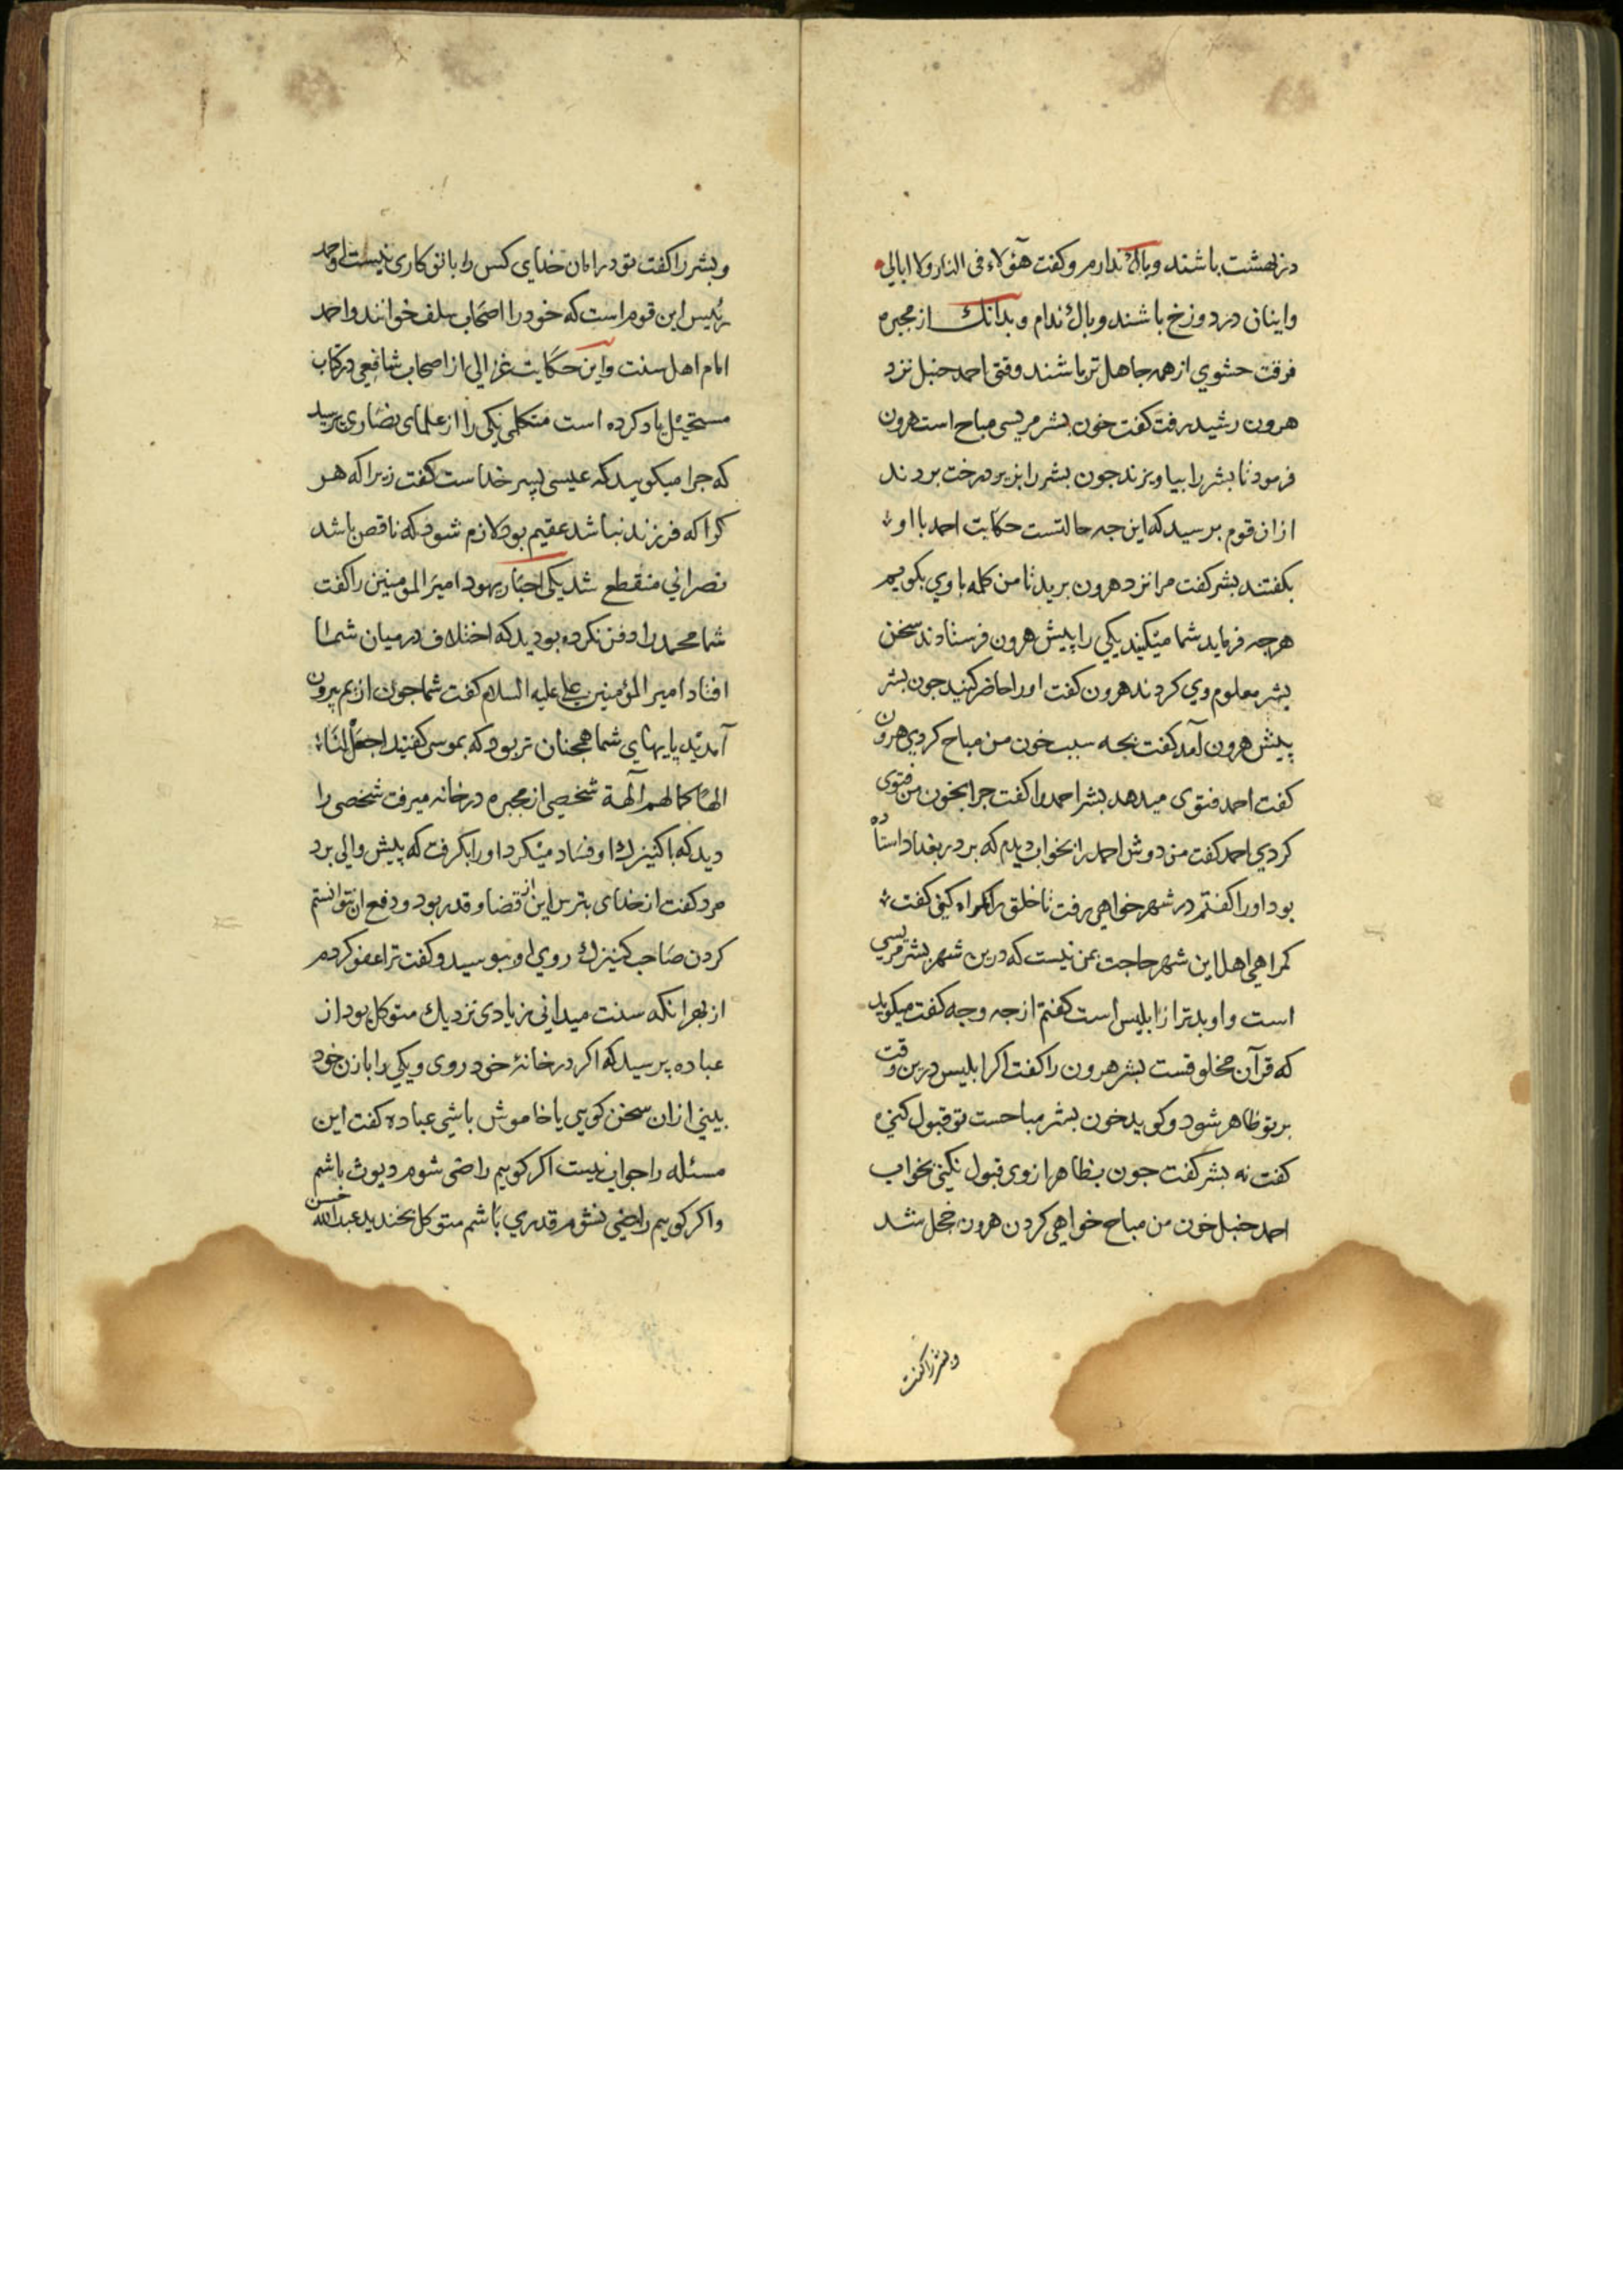 در بهشت باشند و باک ندارم و کفت هؤلاء فی النار ولا ابالی
واینان در دوزخ باشند و باک ندام و بدانک از مجبره
فرقت حشوی از همه جاهل تر باشند وقتی احمد حنبل نزد
هرون رشید رفت کفت خون بشر مریسی مباح است هرون
فرمود تا بشر را بیاویزند جون بشر را بزیر درخت بردند
از ان قوم برسید که این جه حالتست حکایت احمد با او
بکفتند بشر کفت مرا نزد هرون برید تا من کلمه با وی بکویم
هرجه فرماید شما میکنید یکی را پیش هرون فرستادند سخن
بشر معلوم وی کردند هرون کفت او را حاضر کنید جون بشر
پیش هرون آمد کفت بجه سبب خون من مباح کردی هرون
کفت احمد فتوی میدهد بشر احمد را کفت جرا بخون من فتوی
کردی احمد کفت من دوش احمد را بخواب دیدم که بر در بغداد استاده
بود او را کفتم در شهر خواهی رفت تا خلق را کمراه کنی کفت
کمراهی اهل این شهر حاجت بمن نیست که درین شهر بشر مریسی
است و او بدتر از ابلیس است کفتم از جه وجه کفت میکوید
که قرآن مخلوقست بشر هرون را کفت اکر ابلیس درین وقت
بر تو ظاهر شود و کوید خون بشر مباحست تو قبول کنی
کفت نه بشر کفت جون بظاهر از وی قبول نکنی بخواب
احمد حنبل خون من مباح خواهی کردن هرون خجل شد
و بشر را کفت
و بشر را کفت تو در امان خدای کس را با تو کاری نیست و احمد
رئیس این قوم است که خود را اصحاب سلف خوانند و احمد
امام اهل سنت و این حکایت غزالی از اصحاب شافعی در کتاب
مستحیل یاد کرده است متکلمی یکی را از علمای نصاری برسید
که جرا میکویید که عیسی پسر خداست کفت زیرا که هر
کرا که فرزند نباشد عقیم بود لازم شود که ناقص باشد
نصرانی منقطع شد یکی احبار یهود امیر المومنین را کفت
شما محمد را دفن نکرده بودید که اختلاف در میان شما
افتاد امیر المؤمنین علی علیه السلام کفت شما جون از یم بیرون
آمدید پایهای شما همجنان تر بود که بموسی کفتید اجعل لنا
الها کما لهم آلهة شخصی از مجبره در خانه میرفت شخصی را
دید که با کنیزک او فساد میکرد او را بکرفت که پیش والی برد
مرد کفت از خدای بترس این از قضا و قدر بود و دفع ان نتوانستم
کردن صاحب کنیزک روی او ببوسید و کفت ترا عفو کردم
از بهر انکه سنت میدانی زیادی نزدیک متوکل بود از
عباده پرسید که اکر در خانۀ خود روی و یکی را با زن خود
بینی از ان سخن کویی یا خاموش باشی عباده کفت این
مسئله را جواب نیست اکر کویم راضی شوم دیوث باشم
و اکر کویم راضی نشوم قدری باشم متوکل بخندید عبدالله حسن